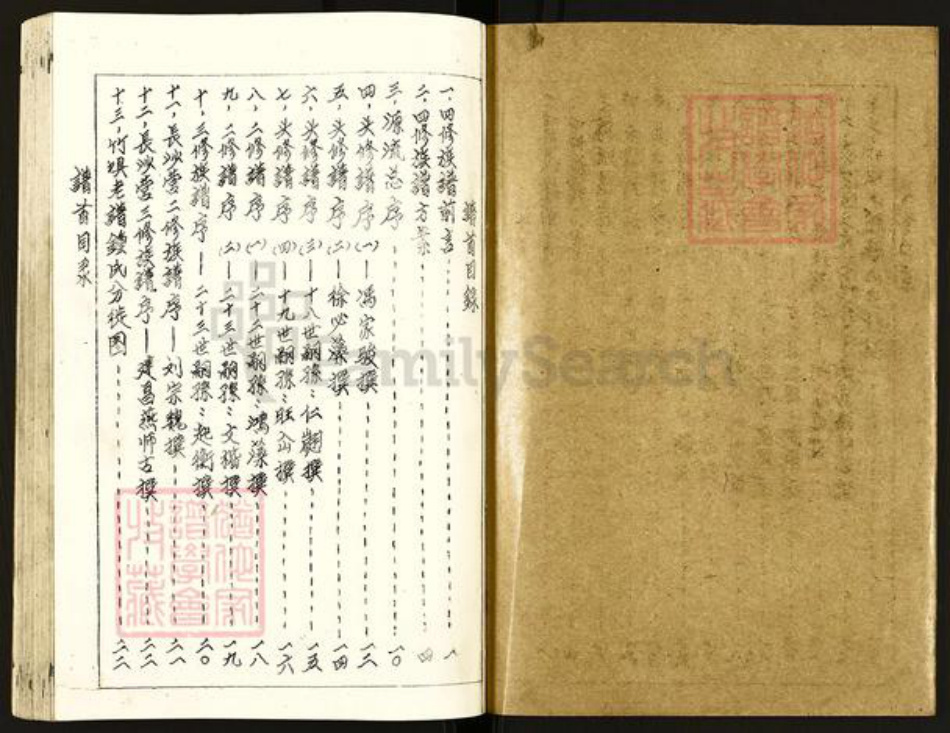 譜首目錄
一，四修族譜前言 一
二，四修族譜方案 四
三，源流总序 一〇
四，头修譜序（一）—馮家駿撰 一二
五，头修譜序（二）—徐必藻撰 一四
六，头修譜序（三）—十八世嗣孫：仁趟撰 一五
七，头修譜序（四）—十九世嗣孫：旺公撰 一六
八，二修譜序（一）—二十二世嗣孫：鴻藻撰 一八
九，二修譜序（二）—二十三世嗣孫：文楷撰 一九
十，三修族譜序—二十三世嗣孫：起衡撰 二〇
十一，長沙雩二修族譜序—刘宗魏撰 二一
十二，長沙雩三修族譜序—建昌燕师古撰 二二
十三，竹塤老譜鐘氏分徙图 二二
譜首目录
FamilySearch